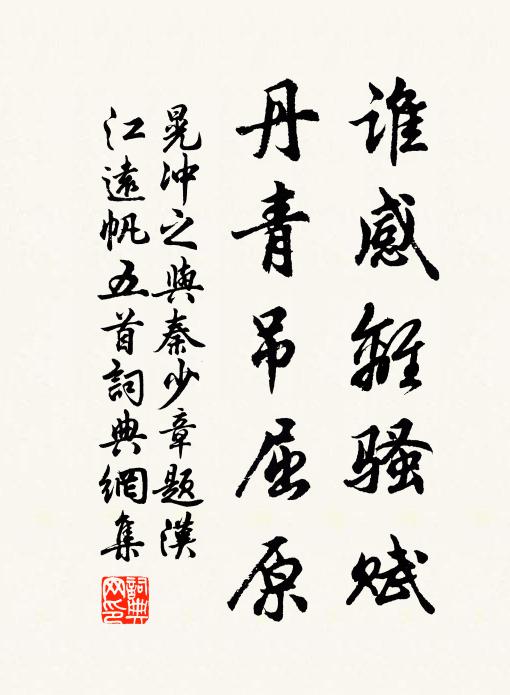 谁感離骚赋
丹青吊屈原
晁冲之與秦少章題漢
江遠帆五首詞典網集
詞典
网印